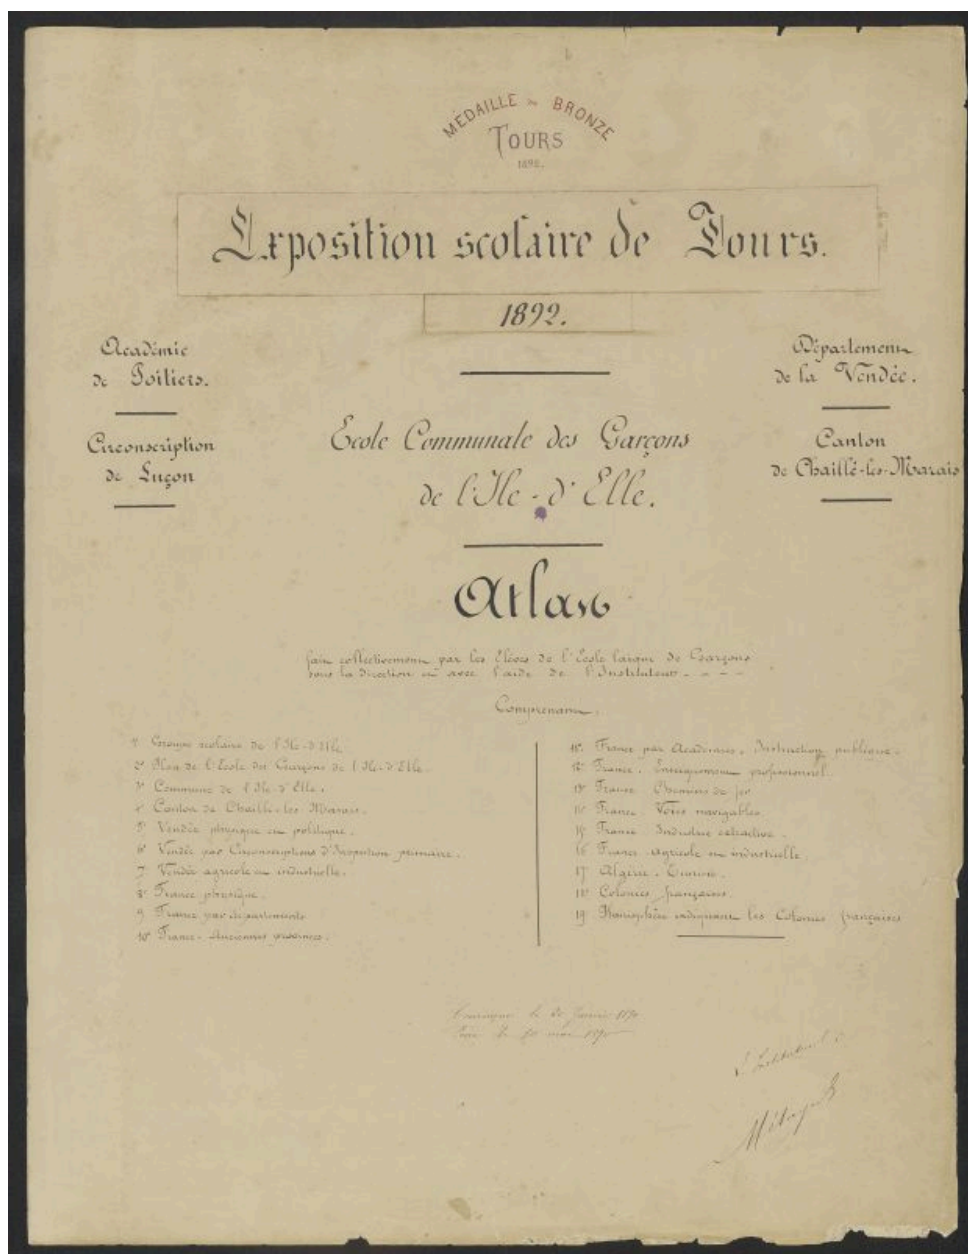 MÉDAILLE DE BRONZE
TOURS
1892.
Exposition scolaire de Tours.
1892.
Académie
de Poitiers.
Circonscription
de Luçon
Département
de la Vendée.
Canton
de Chaillé-les-Marais
Ecole Communale des Garçons
de l'Ile-d'Elle.
Atlas
fait collectivement par les Elèves de l'Ecole laïque de Garçons
sous la direction et avec l'aide de l'Instituteur - - - -
Comprenant.
1° Groupe scolaire de l'Ile-d'Elle
2° Plan de l'Ecole des Garçons de l'Ile-d'Elle.
3° Commune de l'Ile d'Elle.
4° Canton de Chaillé-les Marais.
5° Vendée physique et politique.
6° Vendée par Circonscriptions d'Inspection primaire.
7° Vendée agricole et industrielle.
8° France physique.
9 France par départements
10° France - Anciennes provinces.
11° France par Académies. Instruction publique.
12° France. Enseignement professionnel
13° France Chemins de fer
14° France Voies navigables.
15 France Industrie extractive.
16 France agricole et industrielle.
17 Algérie. Tunisie.
18° Colonies françaises.
19 Planisphère indiquant les Colonies françaises
L'Instituteur